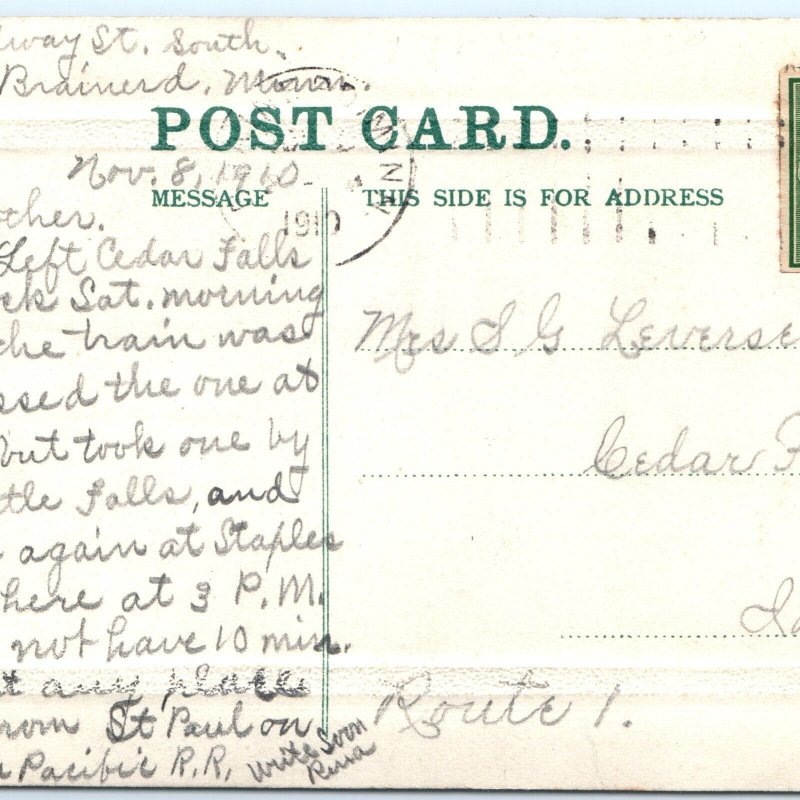 way St. South.
Brainerd, Minn.
POST CARD.
Nov. 8, 1910
MESSAGE
THIS SIDE IS FOR ADDRESS
1910
MINN
ther.
Left Cedar Falls
ck Sat. morning
the train was
ssed the one at
but took one by
ttle Falls, and
again at Staples
here at 3 P.M.
not have 10 min.
t any place
rom St Paul on
Pacific R.R.
Write Soon
Rena
Mrs S G Leverse
Cedar F
Ia
Route 1.